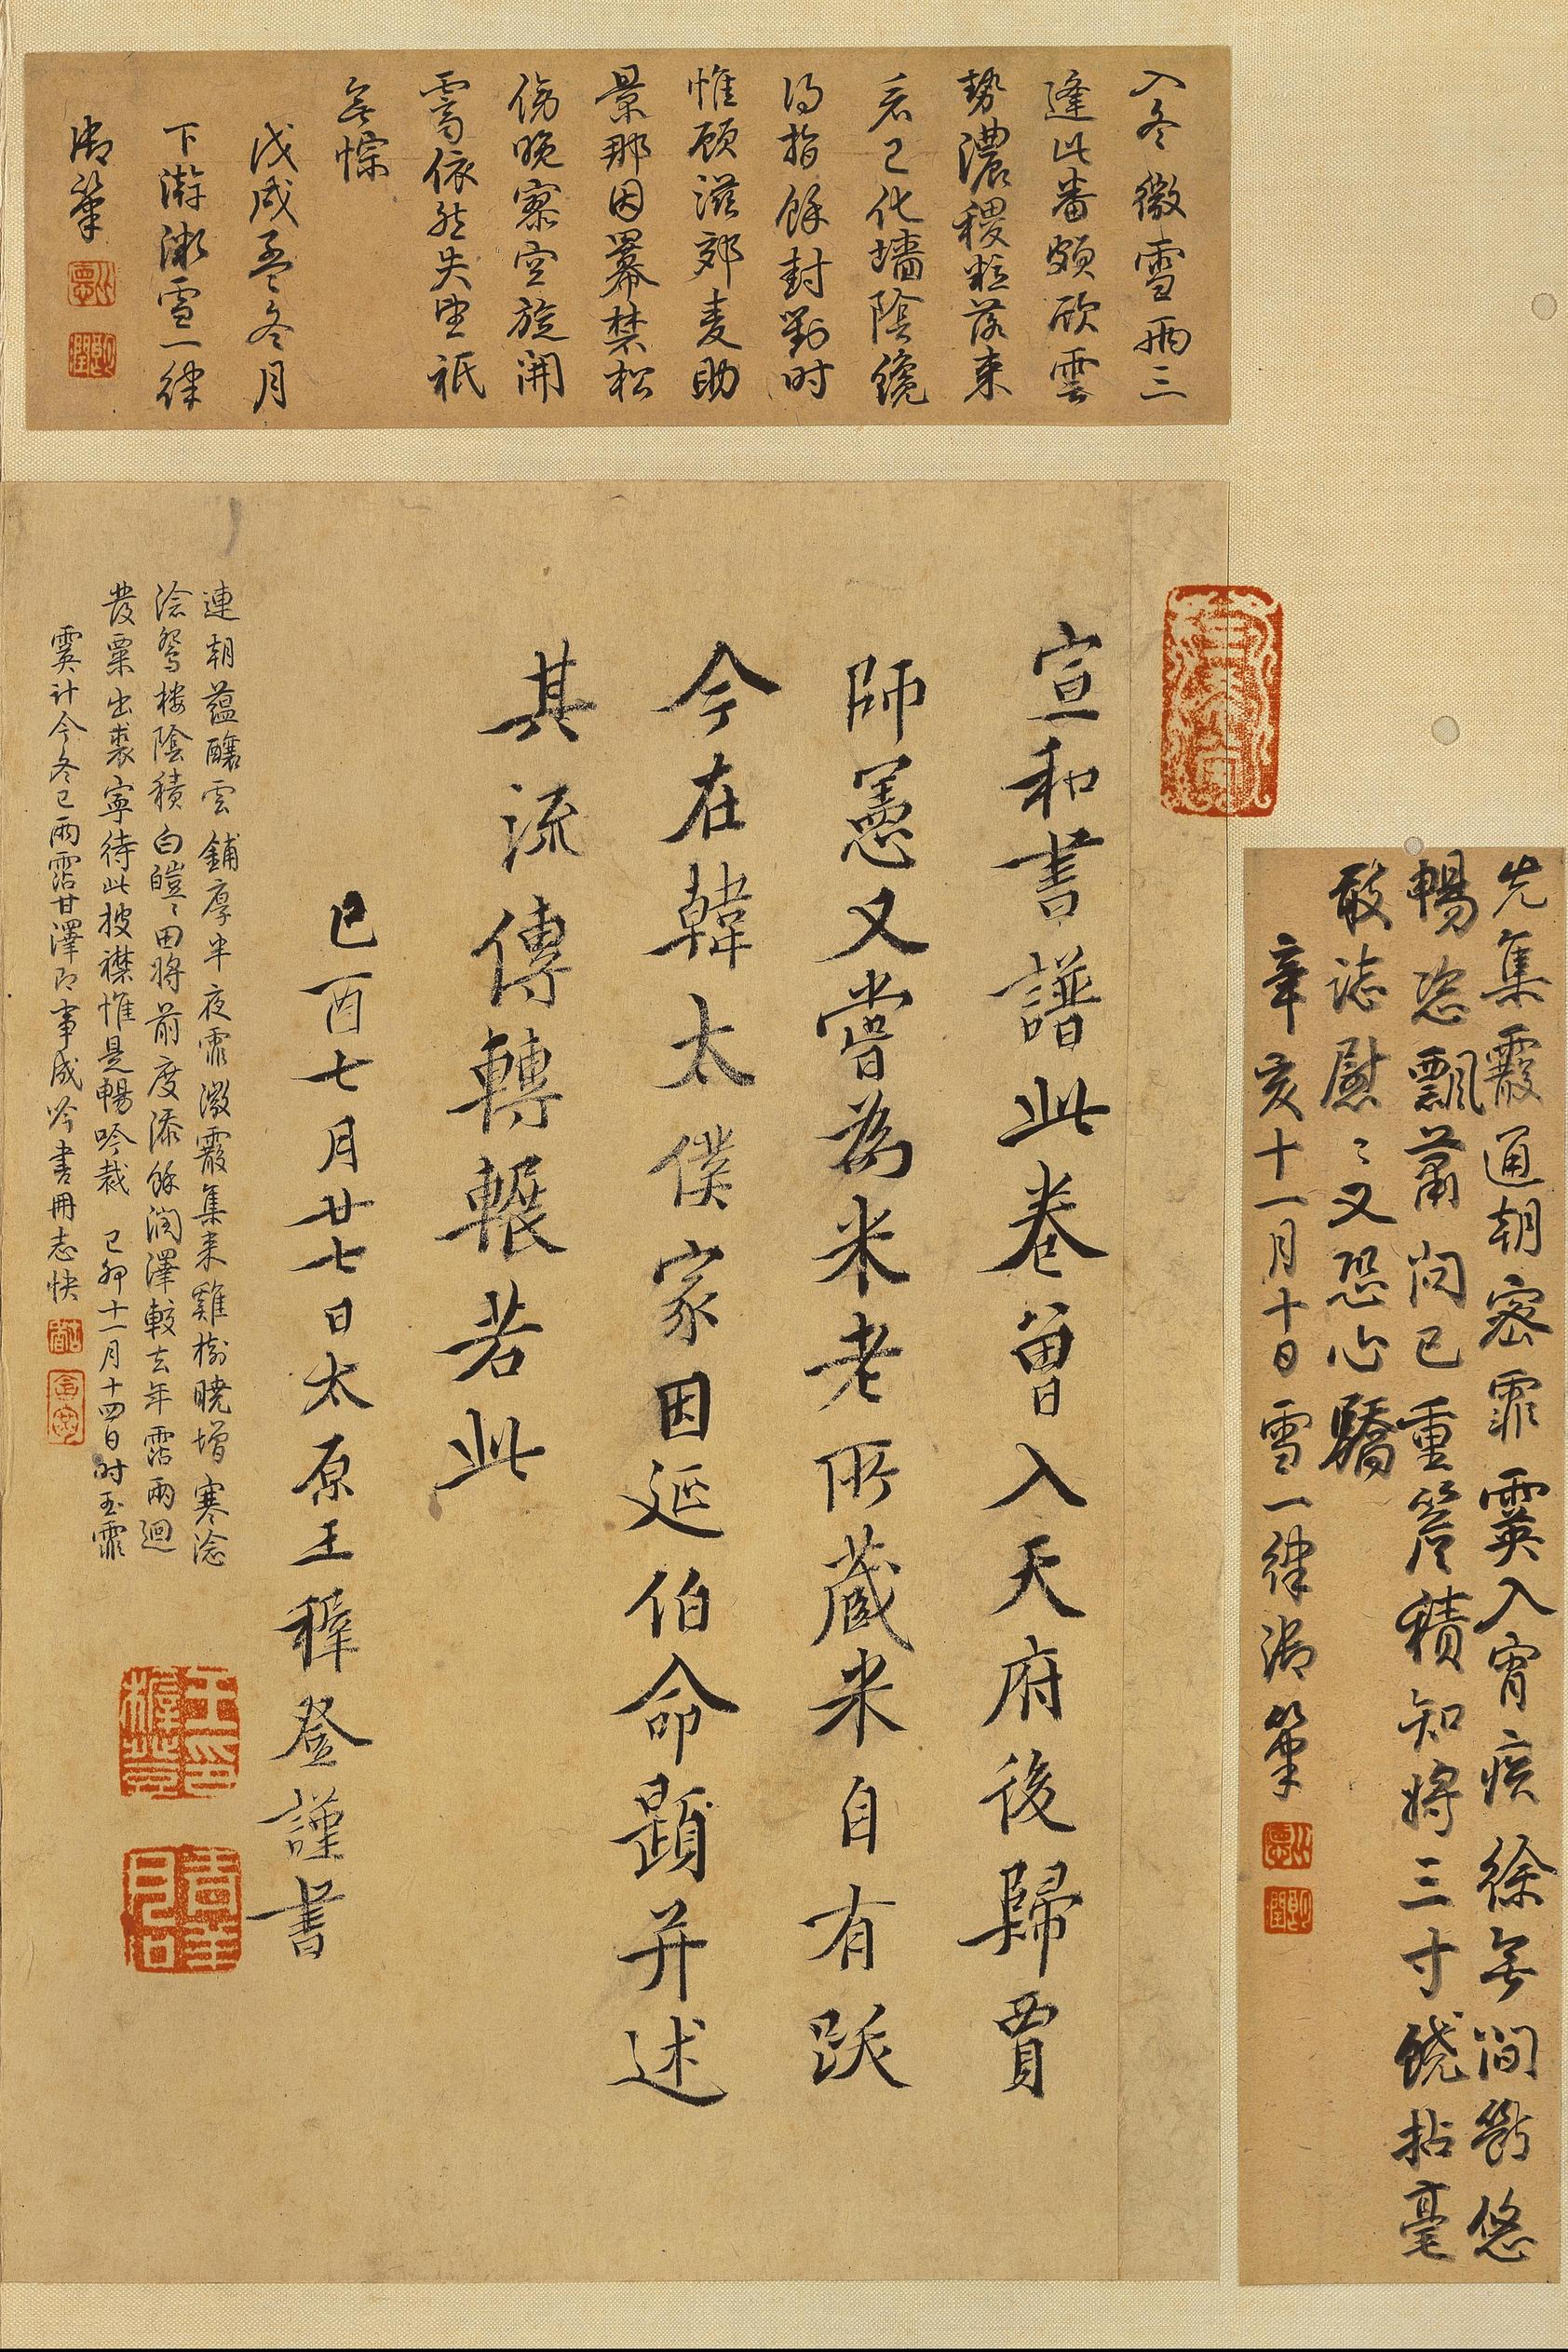 入冬微雪兩三
逢此番頗欣雲
勢濃稷粒落來
看已化墻陰纔
得指餘封對时
惟願滋郊麦助
景那因羃禁松
傍晚寥空旋開
霽依然失望祇
無悰
戊戌孟冬月
下澣微雪一律
御筆
先集霰通朝密霏霙入宵疾徐無間斷悠
暢恣飄蕭問已重簷積知將三寸饒拈毫
敢誌慰〻又恐心驕
辛亥十一月十日雪一律御筆
宣和書譜此卷曾入天府後歸賈
師憲又嘗為米老所藏米自有跋
今在韓太僕家因延伯命題并述
其流傳轉輾若此
已酉七月廿七日太原王穉登謹書
連朝蘊釀雲鋪厚半夜霏微霰集来雞樹曉增寒淰
淰鴛樓陰積白皚〻田將前度添餘潤澤較去年霑兩迴
發粟出裘寧待此披襟惟是暢吟裁 己卯十一月十四日时玉霏
霙计今冬已兩霑甘澤即事成吟書冊志快